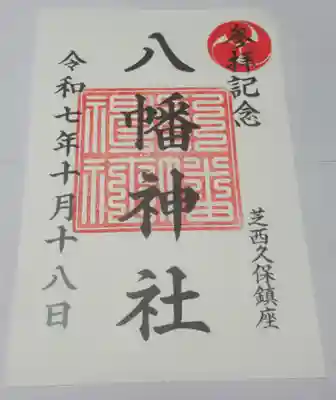 參拝記念
芝西久保鎮座
八幡神社
令和七年十月十八日